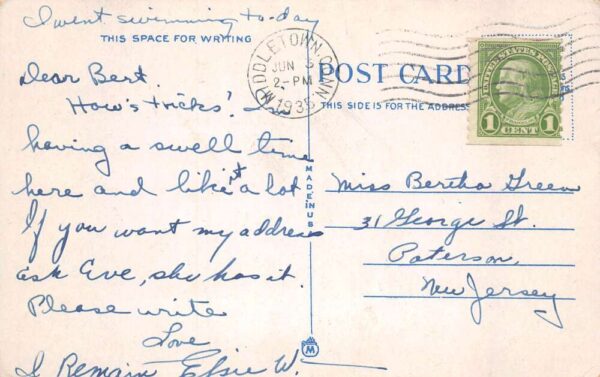 I went swimming to-day
THIS SPACE FOR WRITING
Dear Bert.
How's tricks? I'm
having a swell time
here and like it a lot
If you want my address
ask Eve, she has it.
Please write
Love
I Remain Elsie W.
MADE IN U.S.
MIDDLETOWN, CONN.
JUN
2-PM
1935
POST CARD
THIS SIDE IS FOR THE ADDRESS
UNITED STATES POSTAGE
1 1
CENT
Miss Bertha Green
31 George St.
Paterson,
New Jersey
M